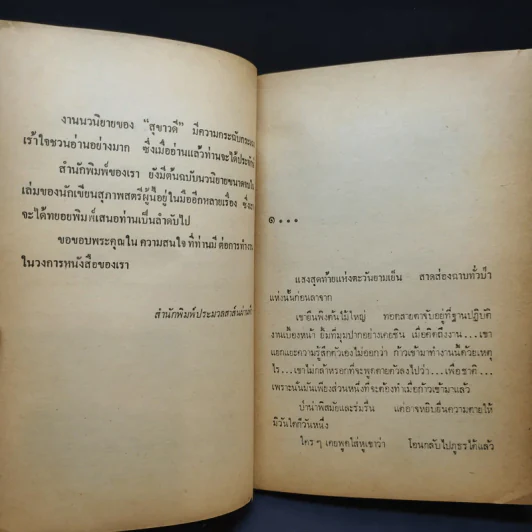 งานนวนิยายของ "สุขาวดี" มีความกระฉับกระเฉง
เร้าใจชวนอ่านอย่างมาก ซึ่งเมื่ออ่านแล้วท่านจะได้ประจักษ์
สำนักพิมพ์ของเรา ยังมีต้นฉบับนวนิยายขนาด
เล่มของนักเขียนสุภาพสตรีผู้นี้อยู่ในมืออีกหลายเรื่อง ซึ่ง
จะได้ทยอยพิมพ์เสนอท่านเป็นลำดับไป
ขอขอบพระคุณใน ความสนใจ ที่ท่านมี ต่อการทำงาน
ในวงการหนังสือของเรา
สำนักพิมพ์ประมวลสาส์น
๑...
แสงสุดท้ายแห่งตะวันยามเย็น สาดส่องฉาบทั่วป่า
แห่งนั้นก่อนลาจาก
เขายืนพิงต้นไม้ใหญ่ ทอดสายตาจับอยู่ที่ฐานปฏิบัติ
งานเบื้องหน้า ยิ้มที่มุมปากอย่างเคยชิน เมื่อคิดถึงงาน...เขา
แยกแยะความรู้สึกตัวเองไม่ออกว่า ก้าวเข้ามาทำงานนี้ด้วยเหตุ
ไร...เขาไม่กล้าหรอกที่จะพูดตายตัวลงไปว่า...เพื่อชาติ...
เพราะนั่นมันเพียงส่วนหนึ่งที่จะต้องทำเมื่อก้าวเข้ามาแล้ว
ป่าน่าพิสมัยและร่มรื่น แต่อาจหยิบยื่นความตายให้
มีวันใดก็วันหนึ่ง
ใคร ๆ เคยพูดใส่หูเขาว่า โอนกลับไปภูธรได้แล้ว